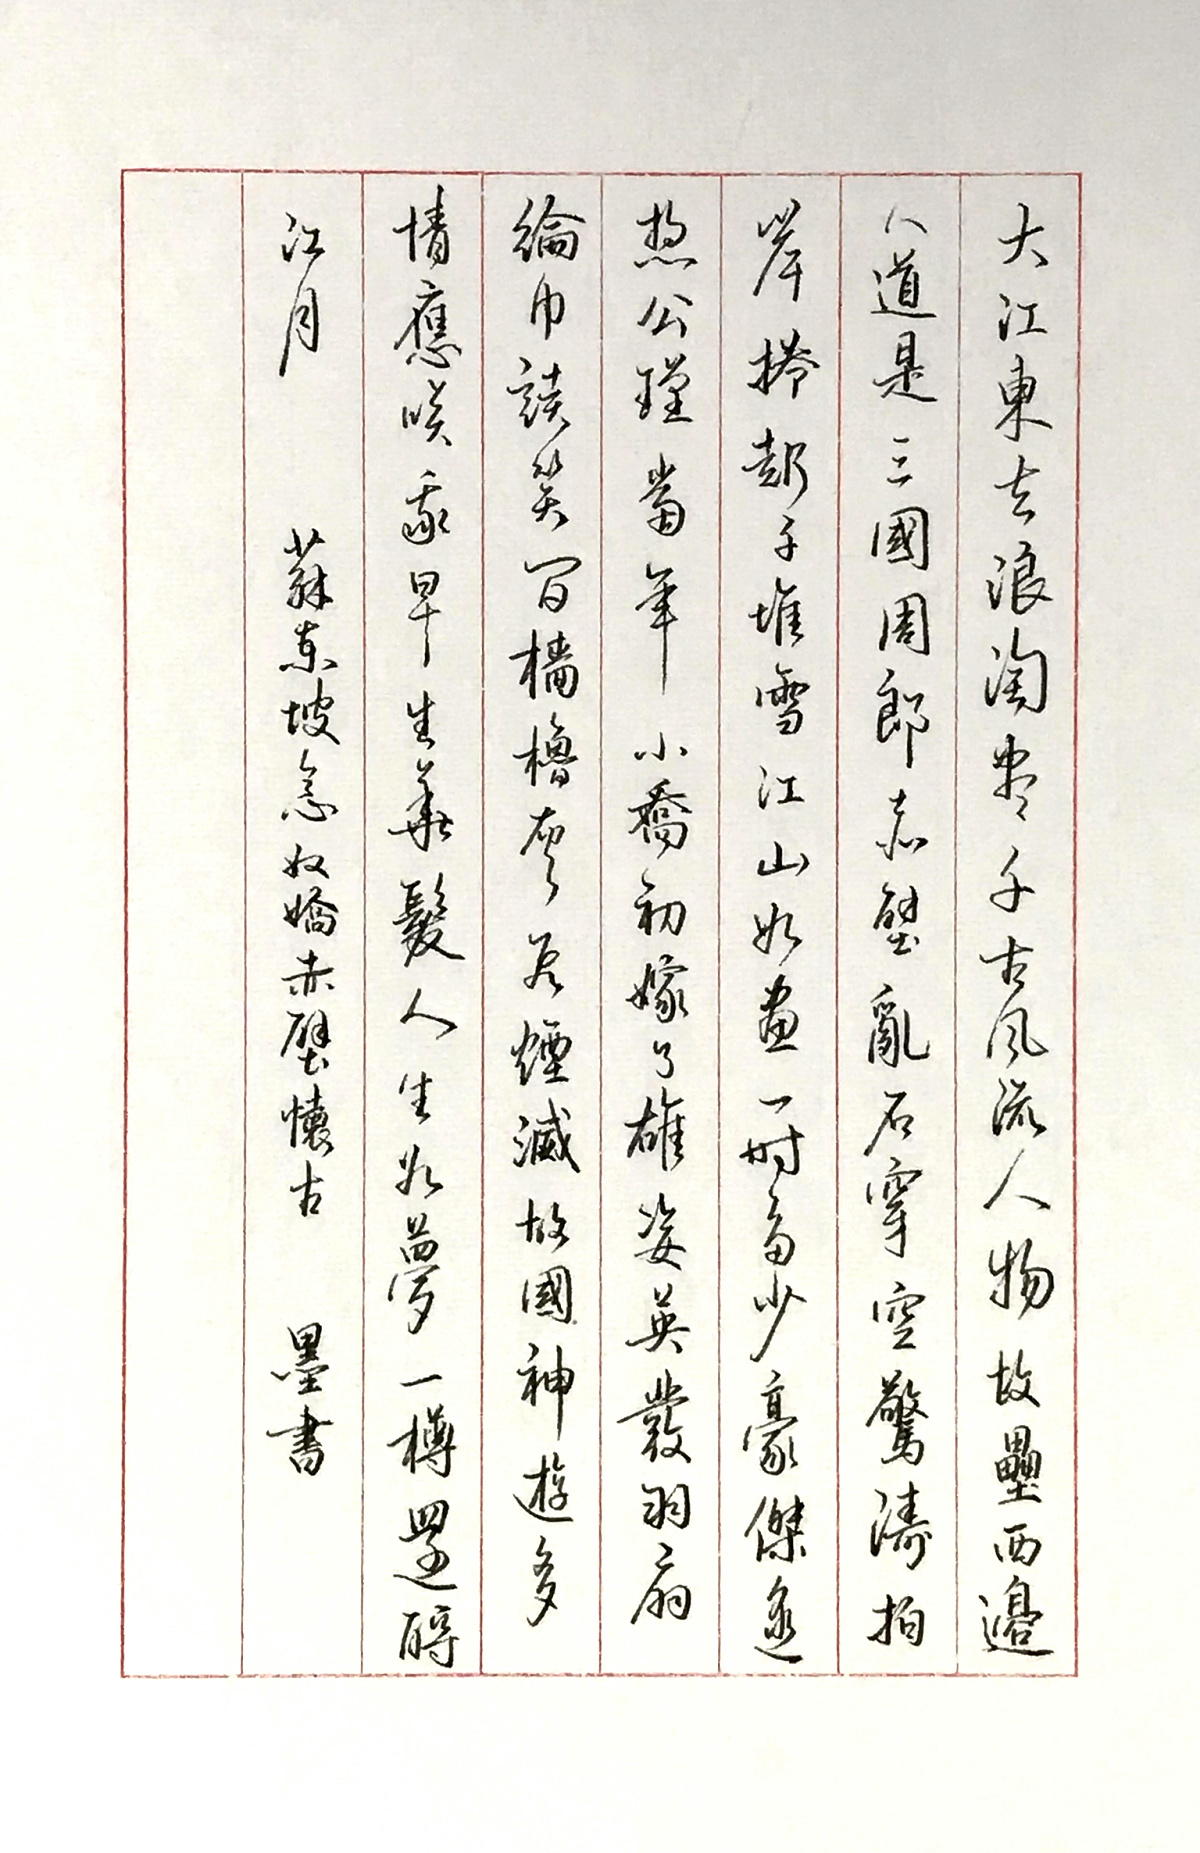 大江東去浪淘盡千古風流人物故壘西邊
人道是三國周郎赤壁亂石穿空驚濤拍
岸捲起千堆雪江山如畫一時多少豪傑遙
想公瑾當年小喬初嫁了雄姿英發羽扇
綸巾談笑間檣櫓灰飛煙滅故國神遊多
情應咲我早生華髮人生如夢一樽還酹
江月 蘇東坡念奴嬌赤壁懷古 墨書